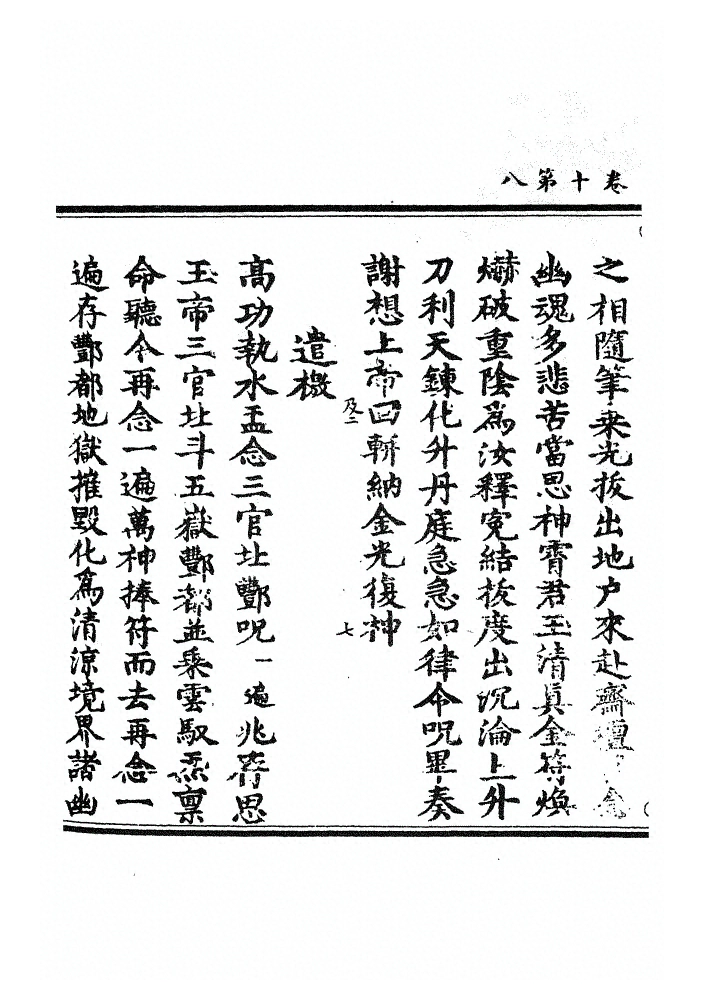 卷十第八
之相隨筆乗光拔出地户來赴齋壇
幽魂多悲苦當思神霄君玉清真金符煥
爀破重陰爲汝釋冤結拔度出沉淪上升
刀利天鍊化升丹庭急急如律命呪畢奏
謝想上帝回輧納金光復神
及二
七
遣檄
高功執水盂念三官北酆呪一遍兆存思
玉帝三官北斗五嶽酆都並乗雲馭炁禀
命聽令再念一遍萬神捧符而去再念一
遍存酆都地獄摧毀化爲清涼境界諸幽